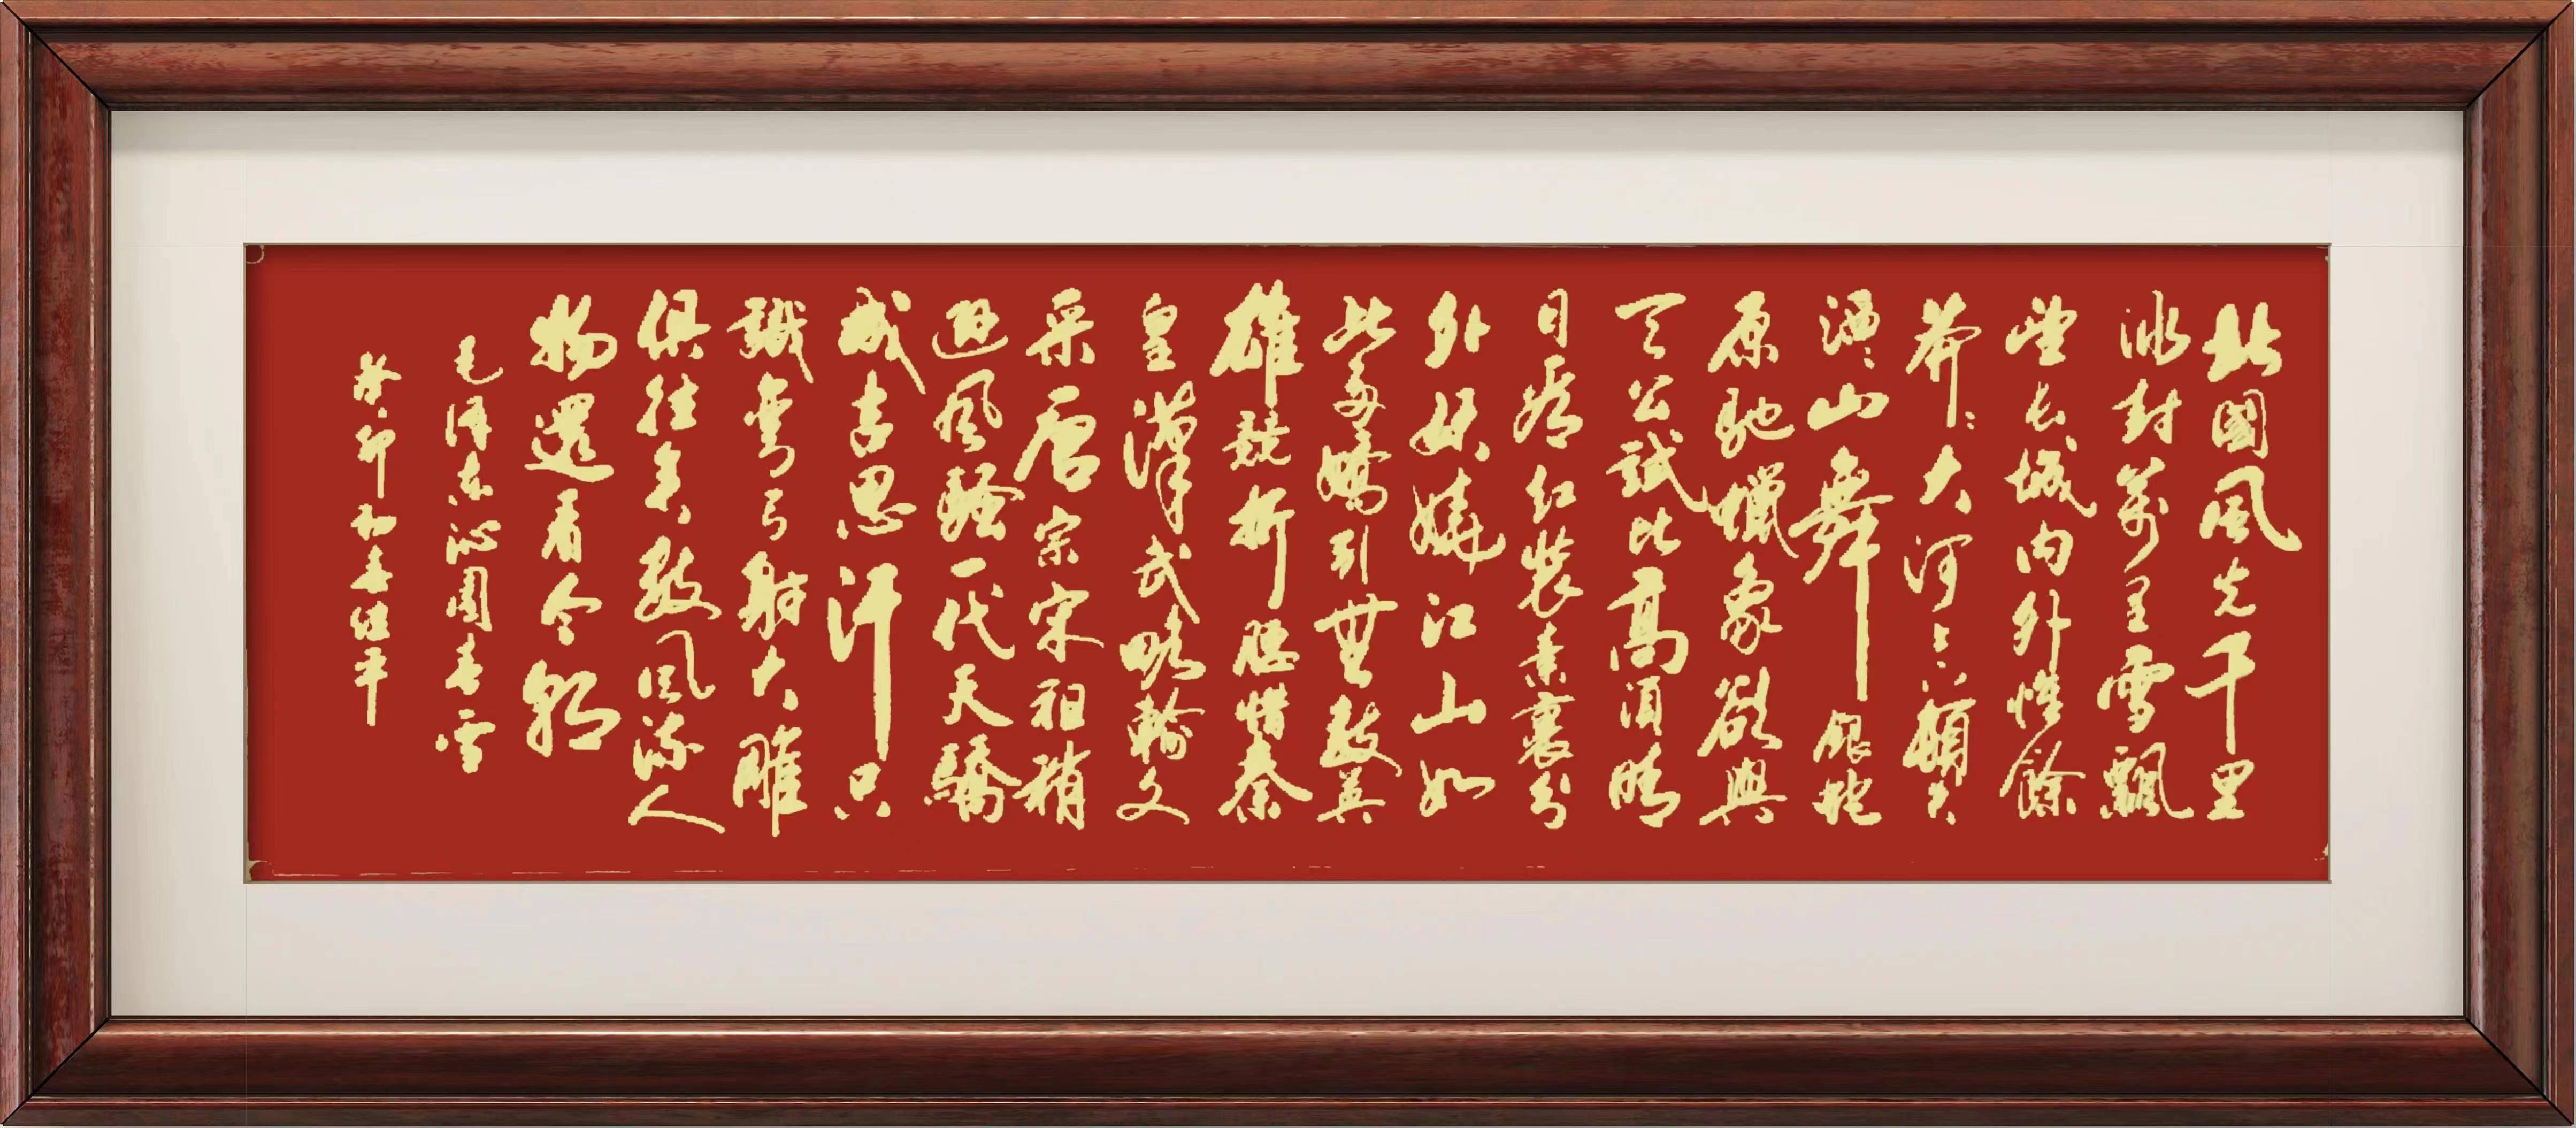 北國風光千里
冰封萬里雪飄
望長城內外惟餘
莽〻大河上下頓失
滔〻山舞銀蛇
原馳蠟象欲與
天公試比高須晴
日看紅裝素裹分
外妖嬈江山如
此多嬌引無數英
雄競折腰惜秦
皇漢武略輸文
采唐宗宋祖稍
遜風騷一代天驕
成吉思汗只
識彎弓射大雕
俱往矣數風流人
物還看今朝
毛澤東沁園春雪
癸卯初春平